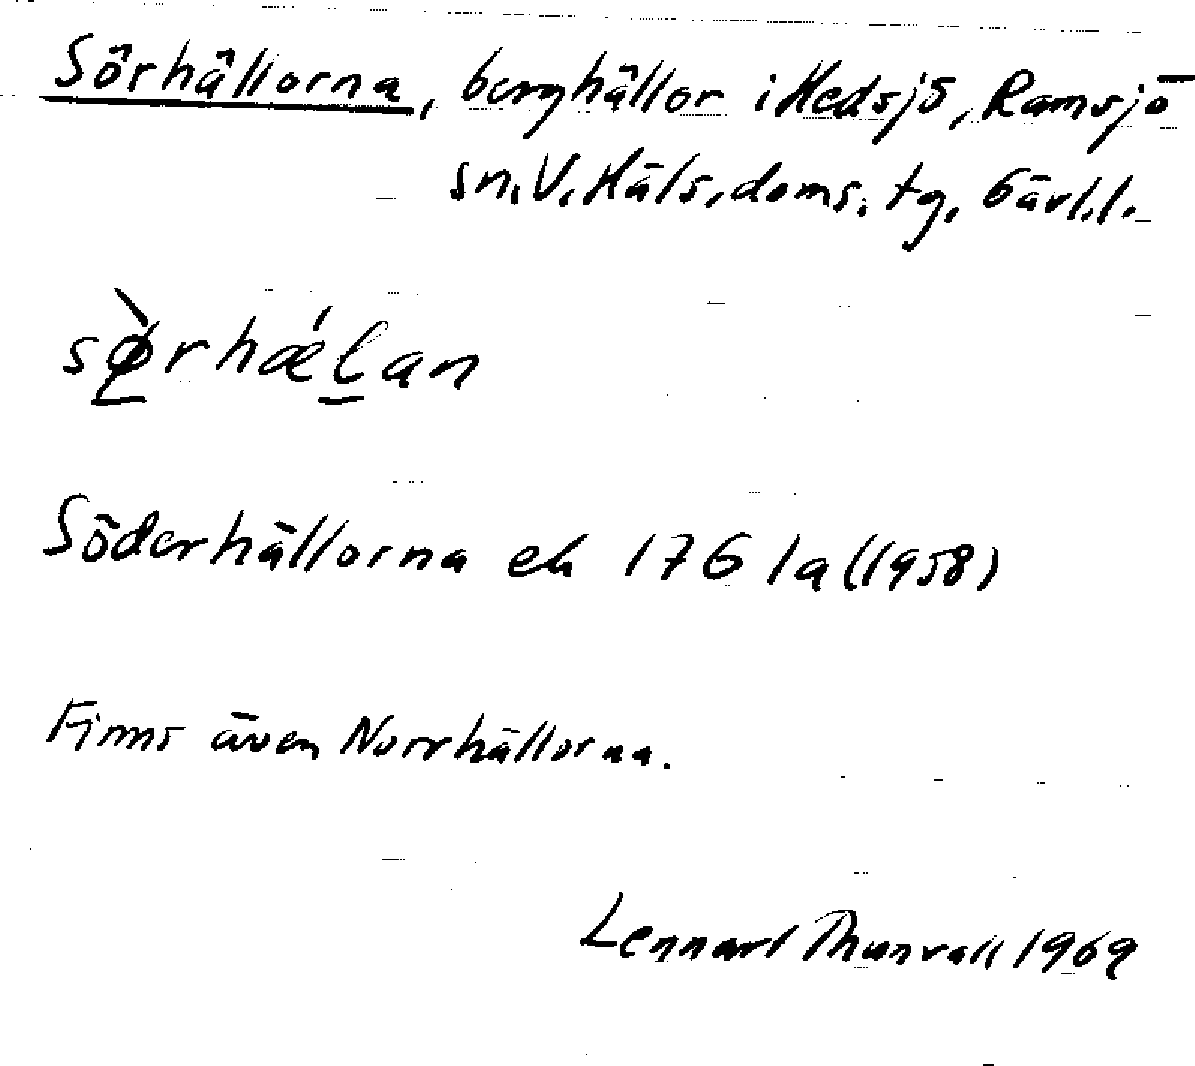 Sörhällorna, berghällor i Hedsjö, Ramsjö
sn. V. Häls. doms. tg. Gävl. l.
sø̀rhǽlan
Söderhällorna ek 176 1a (1958)
Finns även Norrhällorna.
Lennart Thunvall 1969